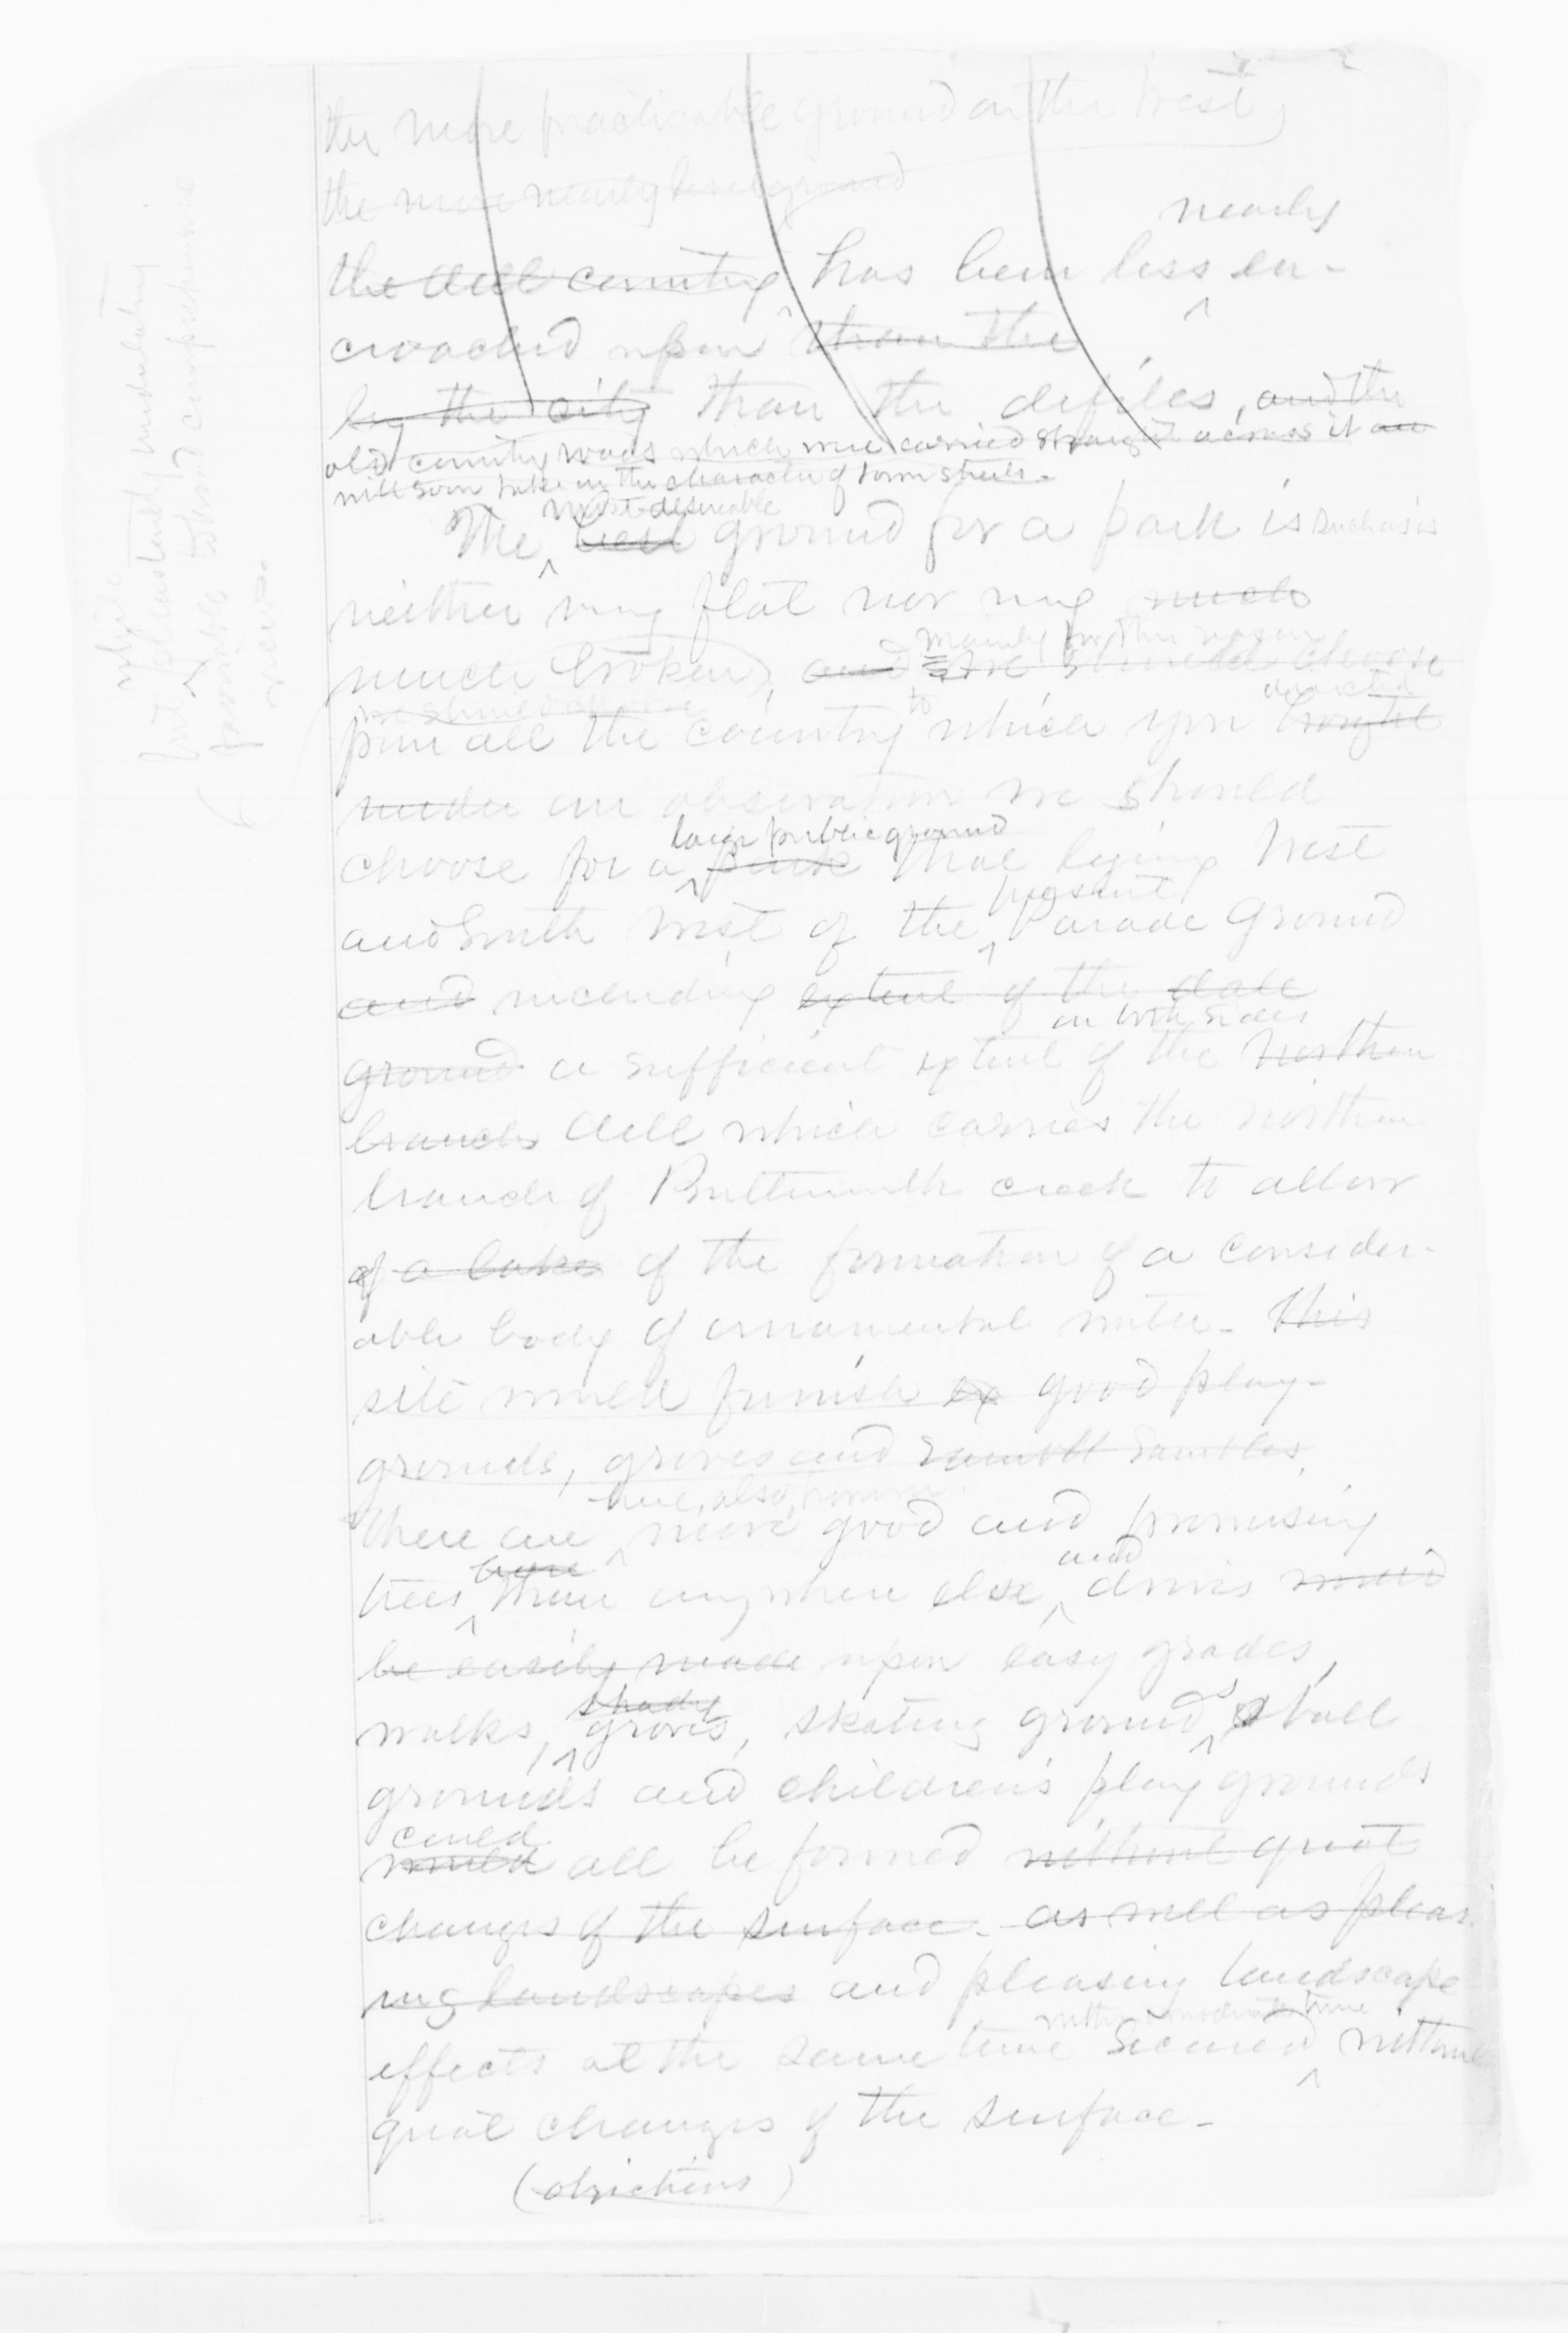 the more practicable ground on the West,
the more nearly level ground
nearly
the dell country has been less en-
croached upon than the
by the city than the defiles, and the
old country roads which were carried straight across it are
will soon take on the character of town streets.
most desireable
The best ground for a park is such as is
neither very flat nor very much
mainly for this reason
much broken, and we should choose
we should choose to directed
from all the country which you brought
under our observation we should
large public ground
choose for a park that lying West
present
and South West of the Parade Ground
and including extent of the dale
on both sides
ground a sufficient extent of the Northern
branch dell which carries the northern
branch of Buttermilk creek to allow
of a lake of the formation of a consider-
able body of ornamental water. This
site would furnish ex good play-
grounds, groves and rambl rambles.
here, also,
There are more good and promising
here and
trees than anywhere else, drives would
be easily made upon easy grades,
shady
walks, groves, skating grounds, ball
grounds and children's play grounds
could
would all be formed without great
changes of the surface. as well as pleas
ing landscapes and pleasing landscape
effects at the same time secured without
great changes of the surface.
(objections)
while
but pleasantly undulating
favorable to broad comprehensive
views.